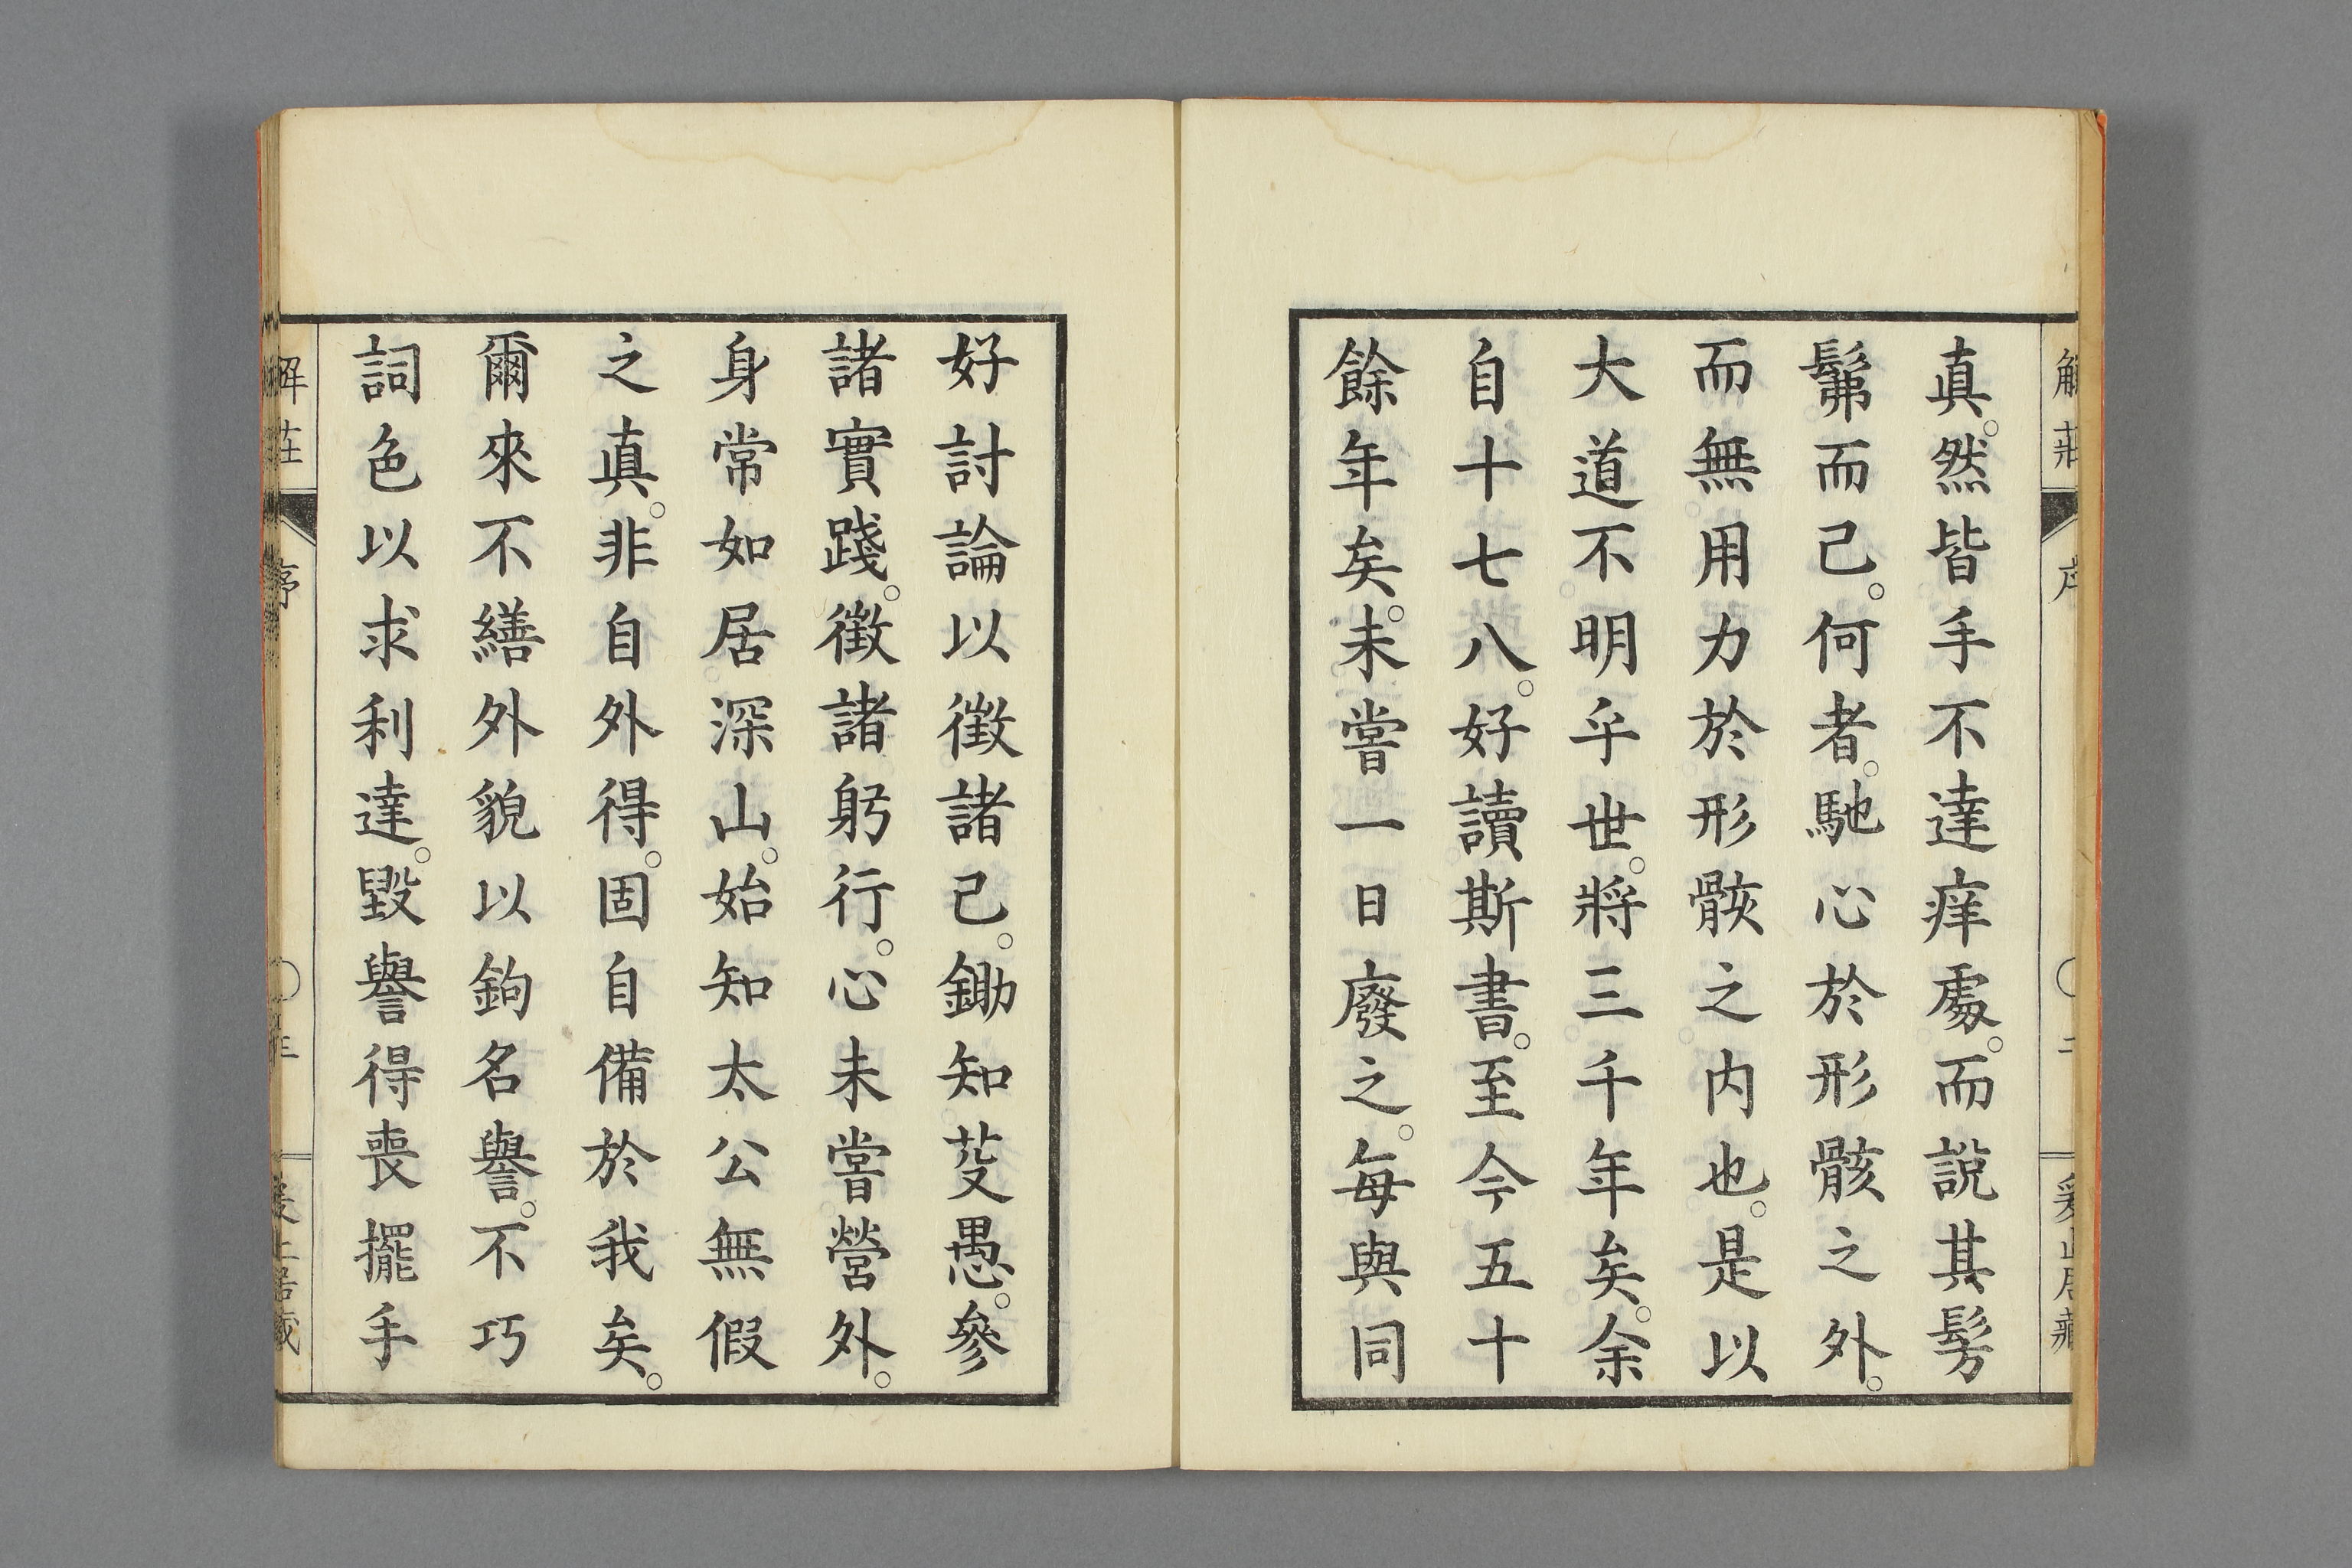 真。然皆手不達痒處。而說其髣
髴而己。何者。馳心於形骸之外。
而無用力於形骸之内也。是以
大道不明乎世。將三千年矣。余
自十七八。好讀斯書。至今五十
餘年矣。未嘗一日廢之。每與同
好討論以徵諸己。鋤知芟愚。參
諸實踐。徵諸躬行。心未嘗營外。
身常如居深山。始知太公無假
之真。非自外得。固自備於我矣。
爾來不繕外貌以鉤名譽。不巧
詞色以求利達。毀譽得喪擺手